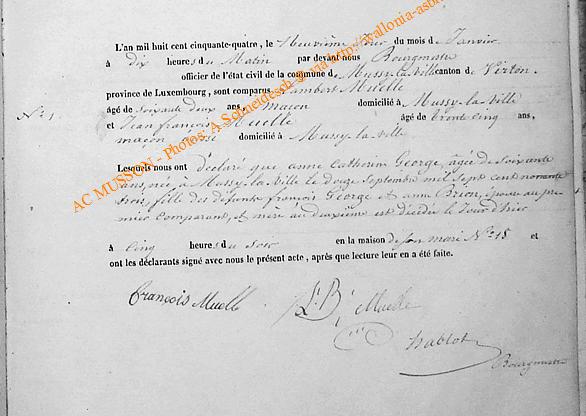 L'an mil huit cent cinquante-quatre, le Neuvième Jour du mois d Janvier
à Dix heures du Matin par devant nous Bourgmestre
officier de l'état civil de la commune de Mussy-la-Ville canton de Virton
province de Luxembourg, sont comparus Lambert Muelle
Nº 1
âgé de Soixante Deux ans, maçon domicilié à Mussy-la-Ville
et Jean françois Muelle âgé de trente cinq ans,
maçon domicilié à Mussy-la-ville
Lesquels nous ont Déclaré que anne Catherine George, âgée de Soixante
ans née à Mussy-la-Ville le Douze Septembre mil Sept Cent nonante
trois, fille des défunts françois George et anne Brion, épouse au pre-
mier Comparant, et mère au deuxième est décédée le Jour d'hier
à Cinq heures du Soir en la maison de son mari Nº 48 et
ont les déclarants signé avec nous le présent acte, après que lecture leur en a été faite.
François Muelle
Muelle
Hablot
Bourgmestre
AC MUSSON - Photos: A Schneidesch @ via http://wallonia-asbl